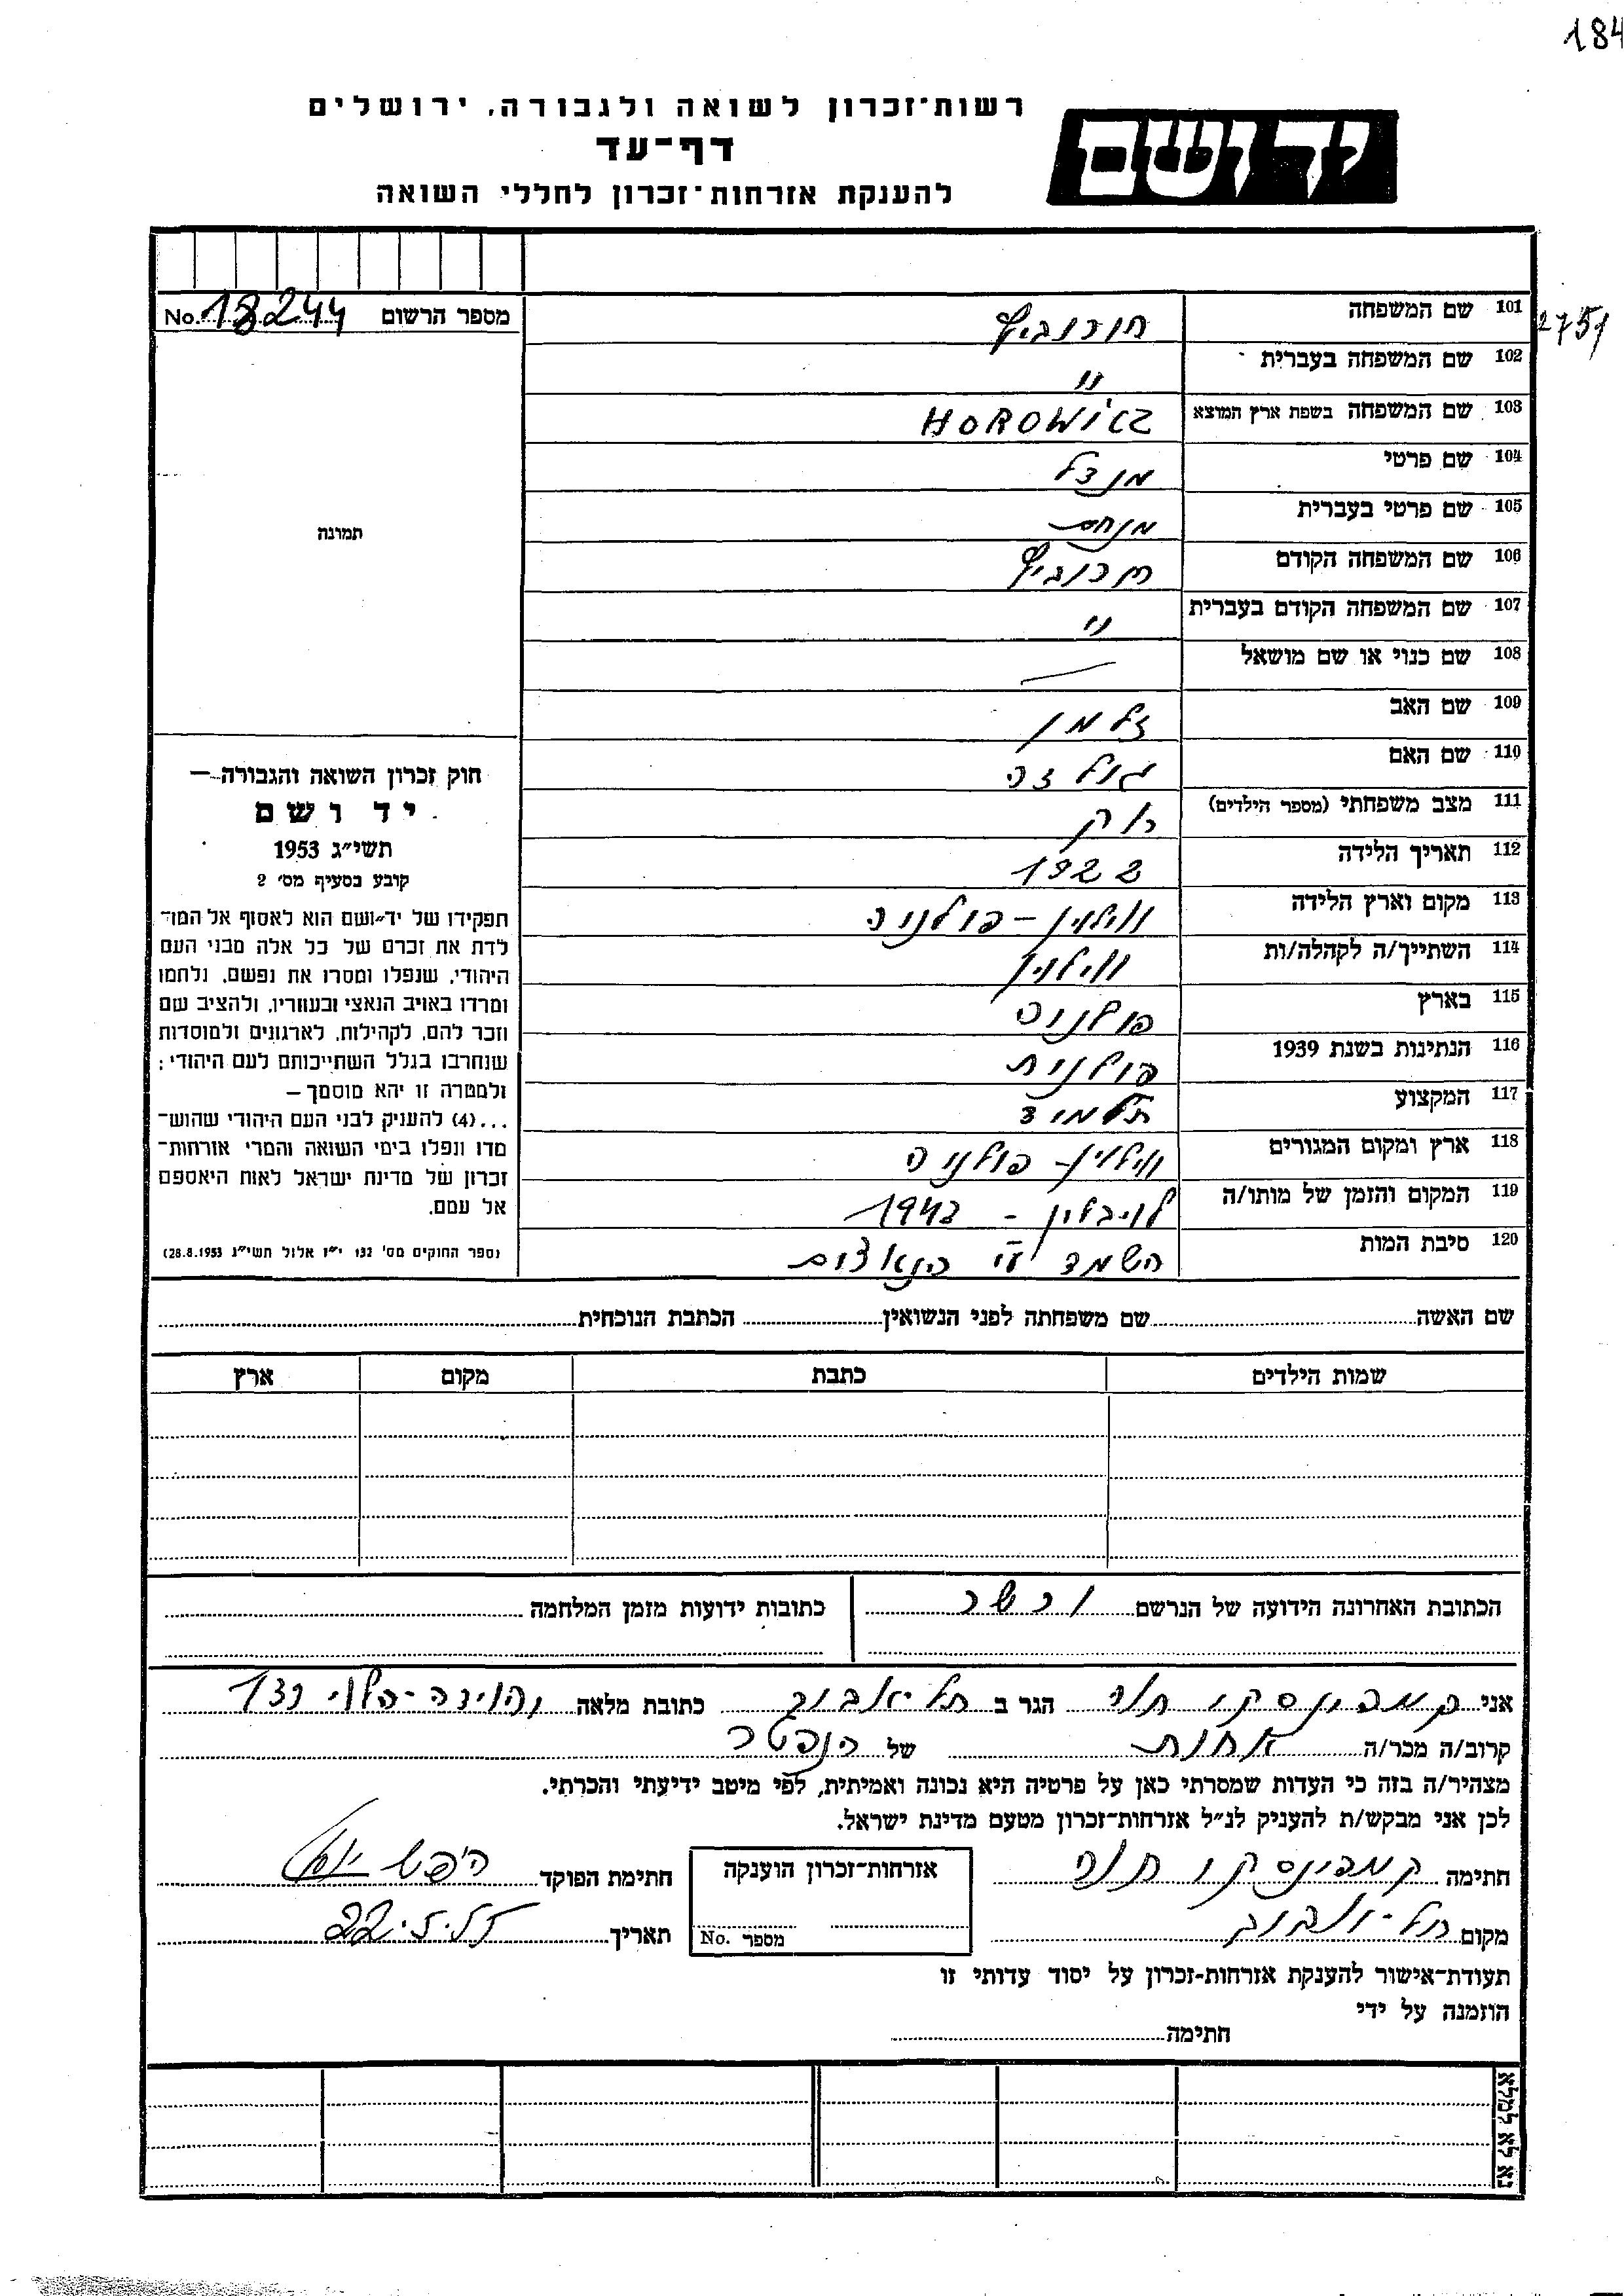 184
רשות־זכרון לשואה ולגבורה, ירושלים
יד ושם
דף־עד
להענקת אזרחות־זכרון לחללי השואה
מספר הרשום No. 18244
2751
101 שם המשפחה הורוביץ
102 שם המשפחה בעברית "
103 שם המשפחה בשפת ארץ המוצא HOROWICZ
104 שם פרטי מנדל
105 שם פרטי בעברית מנחם
106 שם המשפחה הקודם הרוביץ
107 שם המשפחה הקודם בעברית "
108 שם כנוי או שם מושאל —
109 שם האב זלמן
110 שם האם גולדה
111 מצב משפחתי (מספר הילדים) רוק
112 תאריך הלידה 1922
113 מקום וארץ הלידה ווילנין – פולניה
114 השתייך/ה לקהלה/ות ווילנין
115 בארץ פולניה
116 הנתינות בשנת 1939 פולנית
117 המקצוע תלמיד
118 ארץ ומקום המגורים ווילנין – פולניה
119 המקום והזמן של מותו/ה לויבלין – 1943
120 סיבת המות השמד ע"י הנאצים
תמונה
חוק זכרון השואה והגבורה —
יד ושם
תשי״ג 1953
קובע בסעיף מס׳ 2
תפקידו של יד־ושם הוא לאסוף אל המו־
לדת את זכרם של כל אלה מבני העם
היהודי, שנפלו ומסרו את נפשם, נלחמו
ומרדו באויב הנאצי ובעוזריו, ולהציב שם
וזכר להם, לקהילות, לארגונים ולמוסדות
שנחרבו בגלל השתייכותם לעם היהודי;
ולמטרה זו יהא מוסמך —
...(4) להעניק לבני העם היהודי שהוש־
מדו ונפלו בימי השואה והמרי אזרחות־
זכרון של מדינת ישראל לאות היאספם
אל עמם.
(ספר החוקים מס׳ 132 י״ז אלול תשי״ג 28.8.1953)
שם האשה שם משפחתה לפני הנשואין הכתבת הנוכחית
שמות הילדים כתבת מקום ארץ
הכתובת האחרונה הידועה של הנרשם כתובות ידועות מזמן המלחמה
אני קמפינסקי חוה הגר ב תל־אביב כתובת מלאה יהודה־הלוי 132
קרוב/ה מכר/ה אחות של הנפטר
מצהיר/ה בזה כי העדות שמסרתי כאן על פרטיה היא נכונה ואמיתית, לפי מיטב ידיעתי והכרתי.
לכן אני מבקש/ת להעניק לנ״ל אזרחות־זכרון מטעם מדינת ישראל.
חתימה קמפינסקי חוה אזרחות־זכרון הוענקה חתימת הפוקד
מקום תל־אביב מספר No. תאריך 22.5.55
תעודת־אישור להענקת אזרחות־זכרון על יסוד עדותי זו
הוזמנה על ידי
חתימה
נא לא למלא